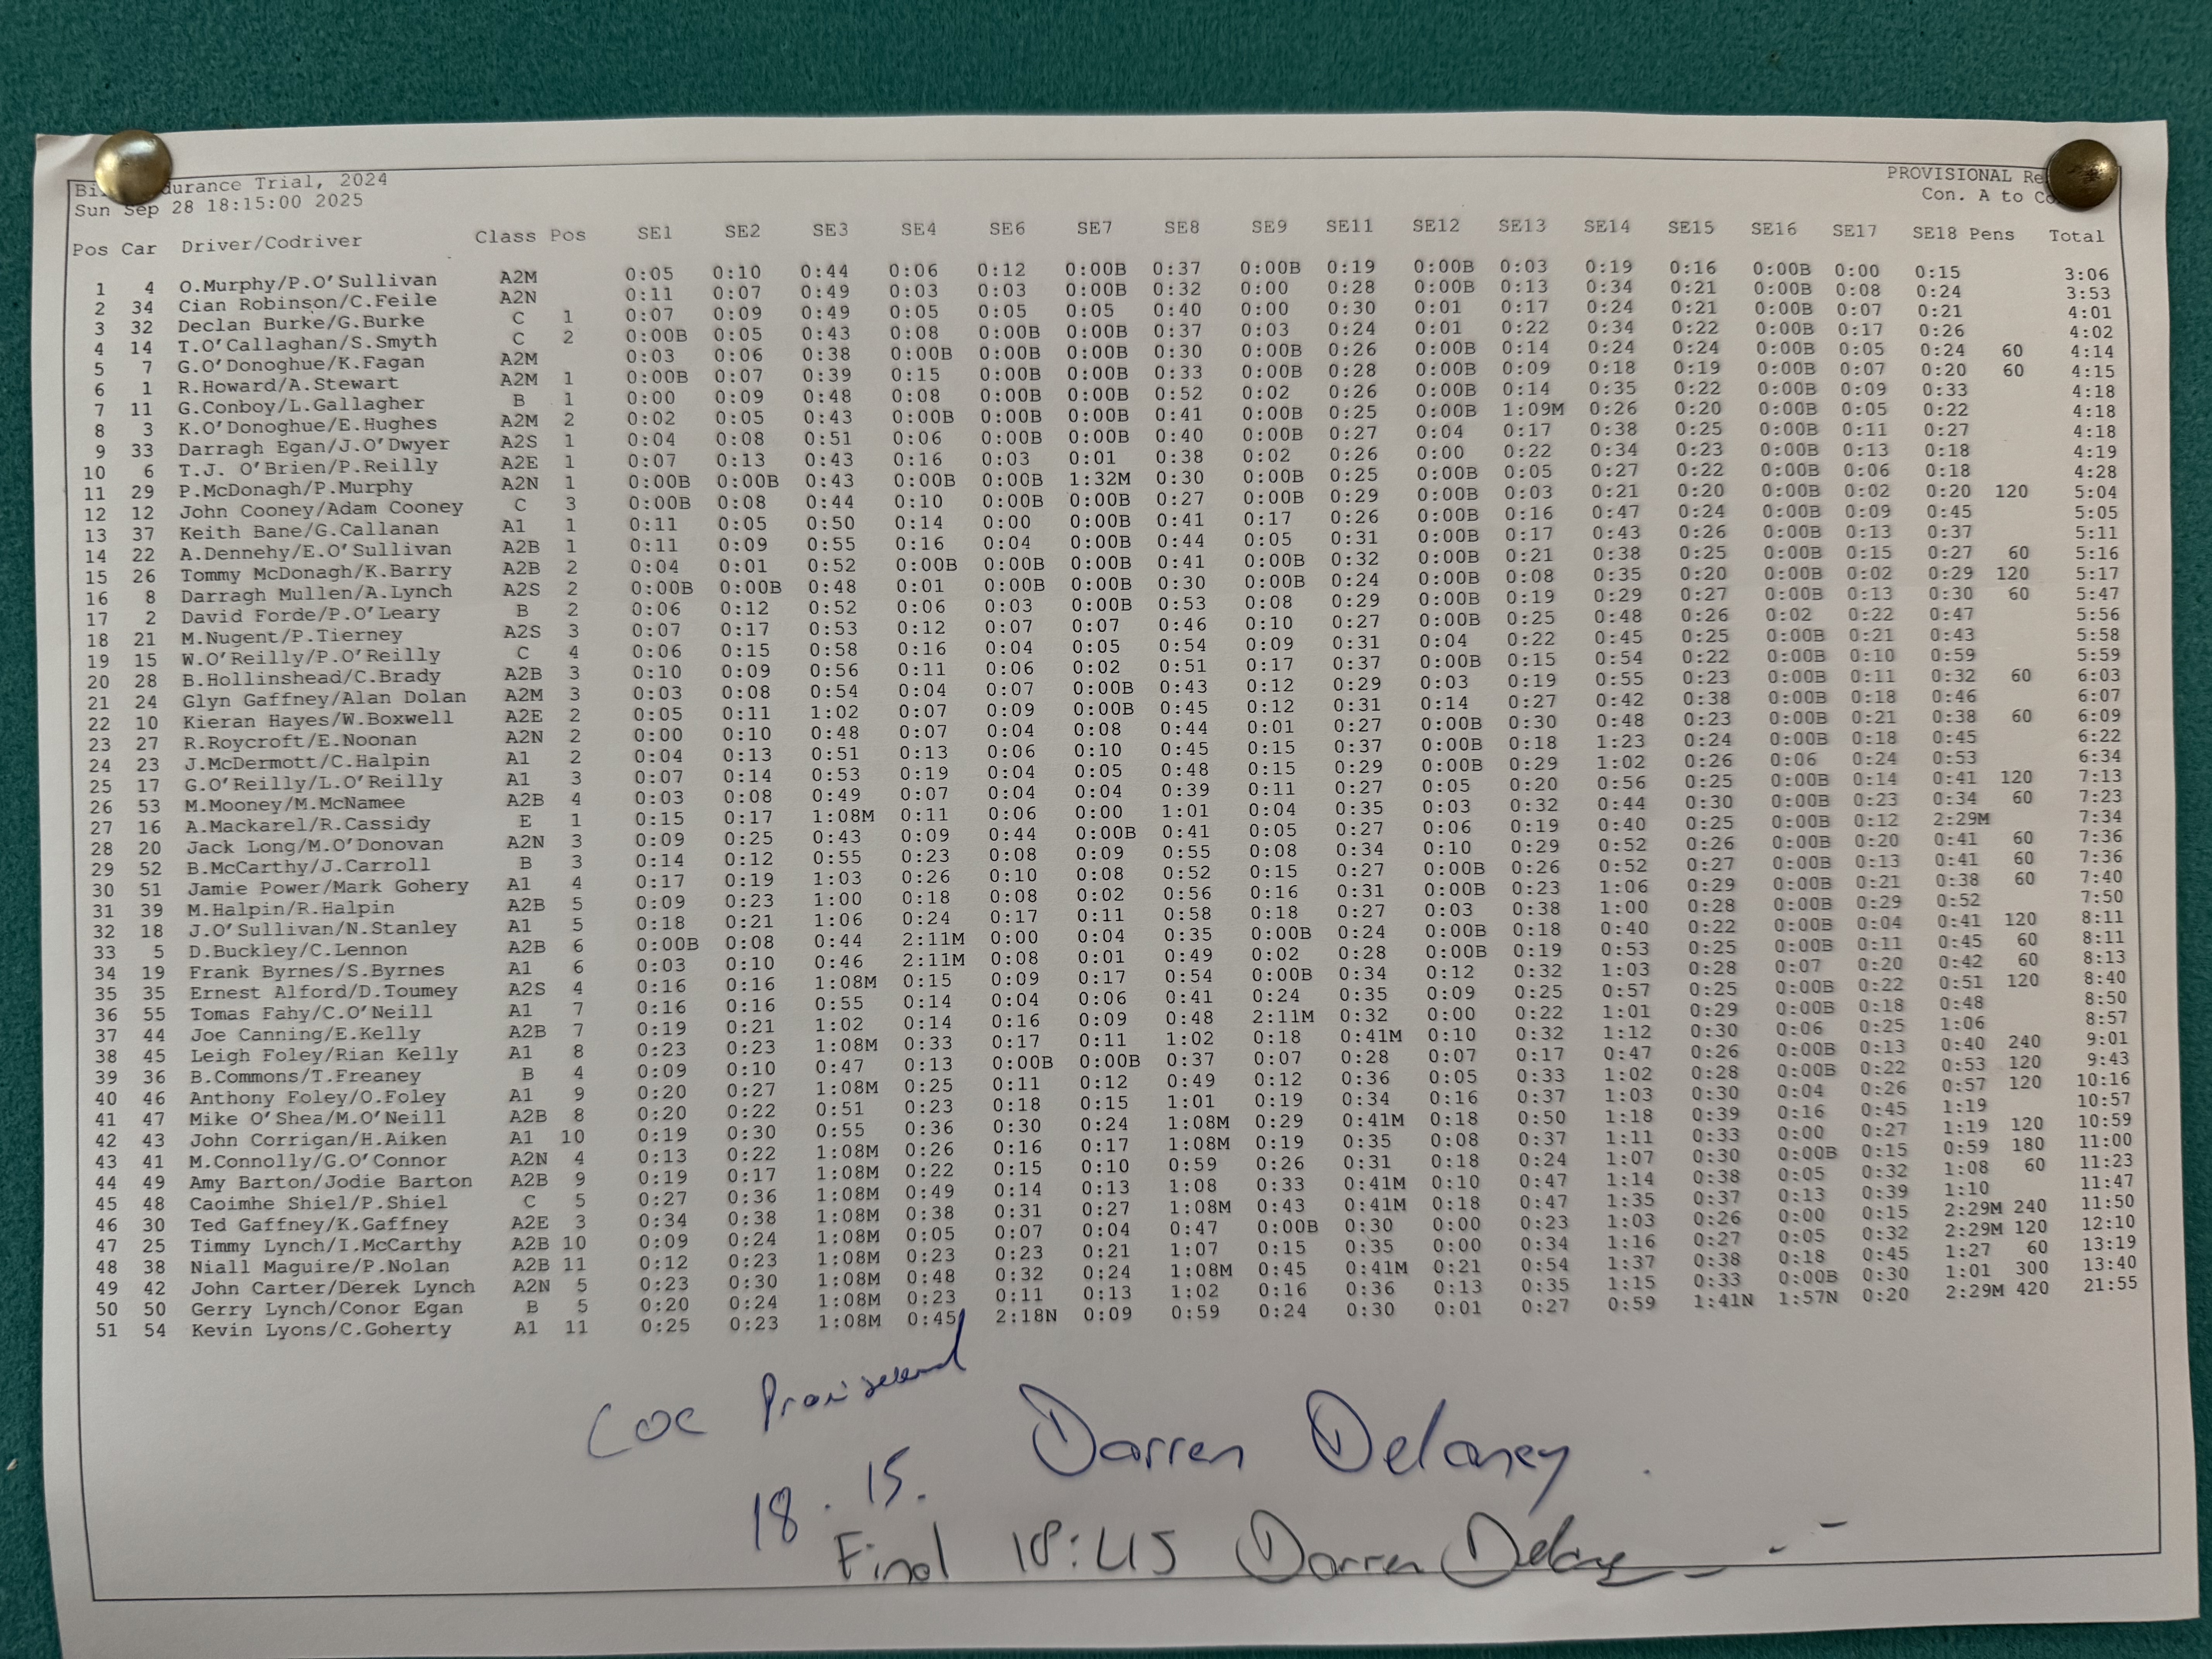 durance Trial, 2024 PROVISIONAL
Sun Sep 28 18:15:00 2025 Con. A to
Pos Car Driver/Codriver Class Pos SE1 SE2 SE3 SE4 SE6 SE7 SE8 SE9 SE11 SE12 SE13 SE14 SE15 SE16 SE17 SE18 Pens Total
1 4 O.Murphy/P.O'Sullivan A2M 0:05 0:10 0:44 0:06 0:12 0:00B 0:37 0:00B 0:19 0:00B 0:03 0:19 0:16 0:00B 0:00 0:15 3:06
2 34 Cian Robinson/C.Feile A2N 0:11 0:07 0:49 0:03 0:03 0:00B 0:32 0:00 0:28 0:00B 0:13 0:34 0:21 0:00B 0:08 0:24 3:53
3 32 Declan Burke/G.Burke C 1 0:07 0:09 0:49 0:05 0:05 0:05 0:40 0:00 0:30 0:01 0:17 0:24 0:21 0:00B 0:07 0:21 4:01
4 14 T.O'Callaghan/S.Smyth C 2 0:00B 0:05 0:43 0:08 0:00B 0:00B 0:37 0:03 0:24 0:01 0:22 0:34 0:22 0:00B 0:17 0:26 4:02
5 7 G.O'Donoghue/K.Fagan A2M 0:03 0:06 0:38 0:00B 0:00B 0:00B 0:30 0:00B 0:26 0:00B 0:14 0:24 0:24 0:00B 0:05 0:24 60 4:14
6 1 R.Howard/A.Stewart A2M 1 0:00B 0:07 0:39 0:15 0:00B 0:00B 0:33 0:00B 0:28 0:00B 0:09 0:18 0:19 0:00B 0:07 0:20 60 4:15
7 11 G.Conboy/L.Gallagher B 1 0:00 0:09 0:48 0:08 0:00B 0:00B 0:52 0:02 0:26 0:00B 0:14 0:35 0:22 0:00B 0:09 0:33 4:18
8 3 K.O'Donoghue/E.Hughes A2M 2 0:02 0:05 0:43 0:00B 0:00B 0:00B 0:41 0:00B 0:25 0:00B 1:09M 0:26 0:20 0:00B 0:05 0:22 4:18
9 33 Darragh Egan/J.O'Dwyer A2S 1 0:04 0:08 0:51 0:06 0:00B 0:00B 0:40 0:00B 0:27 0:04 0:17 0:38 0:25 0:00B 0:11 0:27 4:18
10 6 T.J. O'Brien/P.Reilly A2E 1 0:07 0:13 0:43 0:16 0:03 0:01 0:38 0:02 0:26 0:00 0:22 0:34 0:23 0:00B 0:13 0:18 4:19
11 29 P.McDonagh/P.Murphy A2N 1 0:00B 0:00B 0:43 0:00B 0:00B 1:32M 0:30 0:00B 0:25 0:00B 0:05 0:27 0:22 0:00B 0:06 0:18 4:28
12 12 John Cooney/Adam Cooney C 3 0:00B 0:08 0:44 0:10 0:00B 0:00B 0:27 0:00B 0:29 0:00B 0:03 0:21 0:20 0:00B 0:02 0:20 120 5:04
13 37 Keith Bane/G.Callanan A1 1 0:11 0:05 0:50 0:14 0:00 0:00B 0:41 0:17 0:26 0:00B 0:16 0:47 0:24 0:00B 0:09 0:45 5:05
14 22 A.Dennehy/E.O'Sullivan A2B 1 0:11 0:09 0:55 0:16 0:04 0:00B 0:44 0:05 0:31 0:00B 0:17 0:43 0:26 0:00B 0:13 0:37 5:11
15 26 Tommy McDonagh/K.Barry A2B 2 0:04 0:01 0:52 0:00B 0:00B 0:00B 0:41 0:00B 0:32 0:00B 0:21 0:38 0:25 0:00B 0:15 0:27 60 5:16
16 8 Darragh Mullen/A.Lynch A2S 2 0:00B 0:00B 0:48 0:01 0:00B 0:00B 0:30 0:00B 0:24 0:00B 0:08 0:35 0:20 0:00B 0:02 0:29 120 5:17
17 2 David Forde/P.O'Leary B 2 0:06 0:12 0:52 0:06 0:03 0:00B 0:53 0:08 0:29 0:00B 0:19 0:29 0:27 0:00B 0:13 0:30 60 5:47
18 21 M.Nugent/P.Tierney A2S 3 0:07 0:17 0:53 0:12 0:07 0:07 0:46 0:10 0:27 0:00B 0:25 0:48 0:26 0:02 0:22 0:47 5:56
19 15 W.O'Reilly/P.O'Reilly C 4 0:06 0:15 0:58 0:16 0:04 0:05 0:54 0:09 0:31 0:04 0:22 0:45 0:25 0:00B 0:21 0:43 5:58
20 28 B.Hollinshead/C.Brady A2B 3 0:10 0:09 0:56 0:11 0:06 0:02 0:51 0:17 0:37 0:00B 0:15 0:54 0:22 0:00B 0:10 0:59 5:59
21 24 Glyn Gaffney/Alan Dolan A2M 3 0:03 0:08 0:54 0:04 0:07 0:00B 0:43 0:12 0:29 0:03 0:19 0:55 0:23 0:00B 0:11 0:32 60 6:03
22 10 Kieran Hayes/W.Boxwell A2E 2 0:05 0:11 1:02 0:07 0:09 0:00B 0:45 0:12 0:31 0:14 0:27 0:42 0:38 0:00B 0:18 0:46 6:07
23 27 R.Roycroft/E.Noonan A2N 2 0:00 0:10 0:48 0:07 0:04 0:08 0:44 0:01 0:27 0:00B 0:30 0:48 0:23 0:00B 0:21 0:38 60 6:09
24 23 J.McDermott/C.Halpin A1 2 0:04 0:13 0:51 0:13 0:06 0:10 0:45 0:15 0:37 0:00B 0:18 1:23 0:24 0:00B 0:18 0:45 6:22
25 17 G.O'Reilly/L.O'Reilly A1 3 0:07 0:14 0:53 0:19 0:04 0:05 0:48 0:15 0:29 0:00B 0:29 1:02 0:26 0:06 0:24 0:53 6:34
26 53 M.Mooney/M.McNamee A2B 4 0:03 0:08 0:49 0:07 0:04 0:04 0:39 0:11 0:27 0:05 0:20 0:56 0:25 0:00B 0:14 0:41 120 7:13
27 16 A.Mackarel/R.Cassidy E 1 0:15 0:17 1:08M 0:11 0:06 0:00 1:01 0:04 0:35 0:03 0:32 0:44 0:30 0:00B 0:23 0:34 60 7:23
28 20 Jack Long/M.O'Donovan A2N 3 0:09 0:25 0:43 0:09 0:44 0:00B 0:41 0:05 0:27 0:06 0:19 0:40 0:25 0:00B 0:12 2:29M 7:34
29 52 B.McCarthy/J.Carroll B 3 0:14 0:12 0:55 0:23 0:08 0:09 0:55 0:08 0:34 0:10 0:29 0:52 0:26 0:00B 0:20 0:41 60 7:36
30 51 Jamie Power/Mark Gohery A1 4 0:17 0:19 1:03 0:26 0:10 0:08 0:52 0:15 0:27 0:00B 0:26 0:52 0:27 0:00B 0:13 0:41 60 7:36
31 39 M.Halpin/R.Halpin A2B 5 0:09 0:23 1:00 0:18 0:08 0:02 0:56 0:16 0:31 0:00B 0:23 1:06 0:29 0:00B 0:21 0:38 60 7:40
32 18 J.O'Sullivan/N.Stanley A1 5 0:18 0:21 1:06 0:24 0:17 0:11 0:58 0:18 0:27 0:03 0:38 1:00 0:28 0:00B 0:29 0:52 7:50
33 5 D.Buckley/C.Lennon A2B 6 0:00B 0:08 0:44 2:11M 0:00 0:04 0:35 0:00B 0:24 0:00B 0:18 0:40 0:22 0:00B 0:04 0:41 120 8:11
34 19 Frank Byrnes/S.Byrnes A1 6 0:03 0:10 0:46 2:11M 0:08 0:01 0:49 0:02 0:28 0:00B 0:19 0:53 0:25 0:00B 0:11 0:45 60 8:11
35 35 Ernest Alford/D.Toumey A2S 4 0:16 0:16 1:08M 0:15 0:09 0:17 0:54 0:00B 0:34 0:12 0:32 1:03 0:28 0:07 0:20 0:42 60 8:13
36 55 Tomas Fahy/C.O'Neill A1 7 0:16 0:16 0:55 0:14 0:04 0:06 0:41 0:24 0:35 0:09 0:25 0:57 0:25 0:00B 0:22 0:51 120 8:40
37 44 Joe Canning/E.Kelly A2B 7 0:19 0:21 1:02 0:14 0:16 0:09 0:48 2:11M 0:32 0:00 0:22 1:01 0:29 0:00B 0:18 0:48 8:50
38 45 Leigh Foley/Rian Kelly A1 8 0:23 0:23 1:08M 0:33 0:17 0:11 1:02 0:18 0:41M 0:10 0:32 1:12 0:30 0:06 0:25 1:06 8:57
39 36 B.Commons/T.Freaney B 4 0:09 0:10 0:47 0:13 0:00B 0:00B 0:37 0:07 0:28 0:07 0:17 0:47 0:26 0:00B 0:13 0:40 240 9:01
40 46 Anthony Foley/O.Foley A1 9 0:20 0:27 1:08M 0:25 0:11 0:12 0:49 0:12 0:36 0:05 0:33 1:02 0:28 0:00B 0:22 0:53 120 9:43
41 47 Mike O'Shea/M.O'Neill A2B 8 0:20 0:22 0:51 0:23 0:18 0:15 1:01 0:19 0:34 0:16 0:37 1:03 0:30 0:04 0:26 0:57 120 10:16
42 43 John Corrigan/H.Aiken A1 10 0:19 0:30 0:55 0:36 0:30 0:24 1:08M 0:29 0:41M 0:18 0:50 1:18 0:39 0:16 0:45 1:19 10:57
43 41 M.Connolly/G.O'Connor A2N 4 0:13 0:22 1:08M 0:26 0:16 0:17 1:08M 0:19 0:35 0:08 0:37 1:11 0:33 0:00 0:27 1:19 120 10:59
44 49 Amy Barton/Jodie Barton A2B 9 0:19 0:17 1:08M 0:22 0:15 0:10 0:59 0:26 0:31 0:18 0:24 1:07 0:30 0:00B 0:15 0:59 180 11:00
45 48 Caoimhe Shiel/P.Shiel C 5 0:27 0:36 1:08M 0:49 0:14 0:13 1:08 0:33 0:41M 0:10 0:47 1:14 0:38 0:05 0:32 1:08 60 11:23
46 30 Ted Gaffney/K.Gaffney A2E 3 0:34 0:38 1:08M 0:38 0:31 0:27 1:08M 0:43 0:41M 0:18 0:47 1:35 0:37 0:13 0:39 1:10 11:47
47 25 Timmy Lynch/I.McCarthy A2B 10 0:09 0:24 1:08M 0:05 0:07 0:04 0:47 0:00B 0:30 0:00 0:23 1:03 0:26 0:00 0:15 2:29M 240 11:50
48 38 Niall Maguire/P.Nolan A2B 11 0:12 0:23 1:08M 0:23 0:23 0:21 1:07 0:15 0:35 0:00 0:34 1:16 0:27 0:05 0:32 2:29M 120 12:10
49 42 John Carter/Derek Lynch A2N 5 0:23 0:30 1:08M 0:48 0:32 0:24 1:08M 0:45 0:41M 0:21 0:54 1:37 0:38 0:18 0:45 1:27 60 13:19
50 50 Gerry Lynch/Conor Egan B 5 0:20 0:24 1:08M 0:23 0:11 0:13 1:02 0:16 0:36 0:13 0:35 1:15 0:33 0:00B 0:30 1:01 300 13:40
51 54 Kevin Lyons/C.Goherty A1 11 0:25 0:23 1:08M 0:45 2:18N 0:09 0:59 0:24 0:30 0:01 0:27 0:59 1:41N 1:57N 0:20 2:29M 420 21:55
COC Provisional Darren Delaney
18.15.
Final 18:45 Darren Delaney